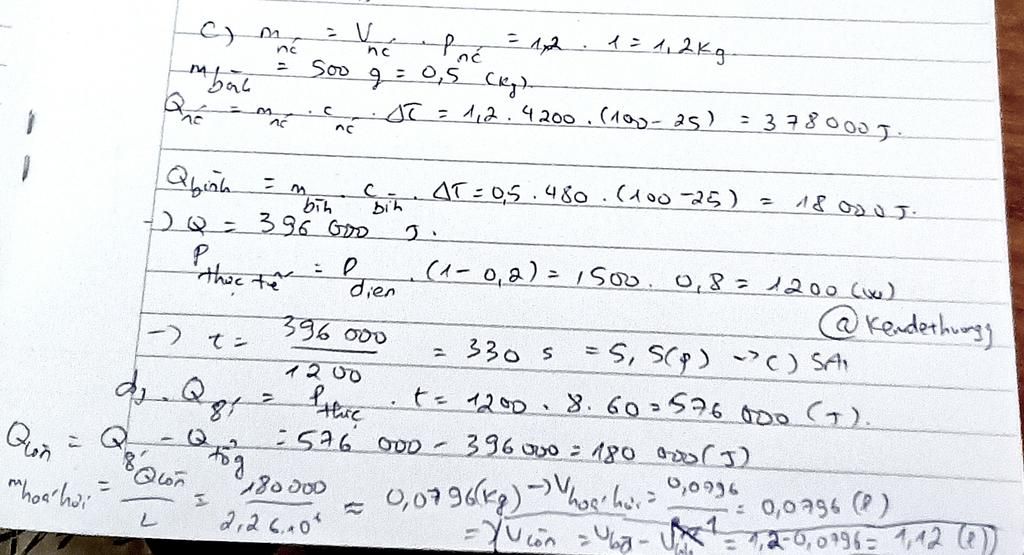 c) m nć = V nć . ρ nć = 1,2 . 1 = 1,2 kg.
m bình = 500 g = 0,5 (kg).
Q nć = m nć . c nć . ΔT = 1,2 . 4200 . (100 - 25) = 378000 J.
Q bình = m bìh . c bìh . ΔT = 0,5 . 480 . (100 - 25) = 18 000 J.
-> Q = 396 000 J.
P thực tế = P điện . (1 - 0,2) = 1500 . 0,8 = 1200 (w)
@Kendethuongg
-> t = 396 000 / 1200 = 330 s = 5,5(p) -> c) SAi
d, . Q 8' = P thực . t = 1200 . 8 . 60 = 576 000 (J).
Q còn = Q 8' - Q tổg = 576 000 - 396 000 = 180 000 (J)
m hoá hơi = Q còn / L = 180 000 / 2,26.10⁶ ≈ 0,0796 (kg) -> V hoá hơi = 0,0796 / 1 = 0,0796 (l)
=> V còn = V bđ - V = 1,2 - 0,0796 = 1,12 (l)